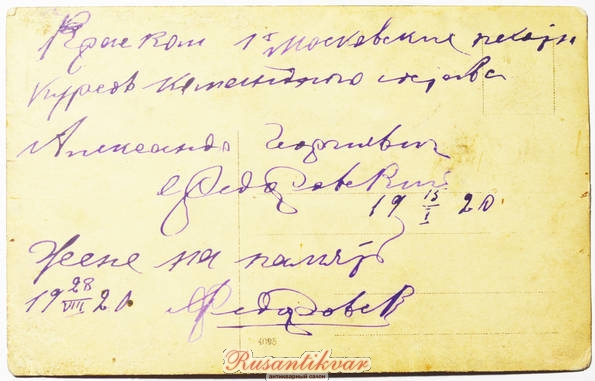 Краском 1й Московские пехотн
Курсов командного состава
Александр Георгиевич
Федоровский
19 15/I 20
Жене на память
19 28/VIII 20 Федоровск
4095
Rusantikvar
антикварный салон